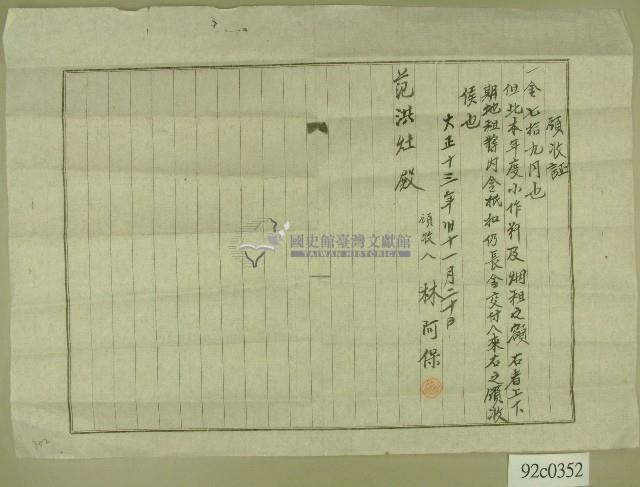 領收証
一金七拾九円也
但此本年度小作料及畑租之額右者上下
期地租醬內金抵扣仍長金交付入來右之領收
候也
大正十三年旧十一月二十日
領收人 林阿保
范洪灶殿
國史館臺灣文獻館
TAIWAN HISTORICA
92c0352